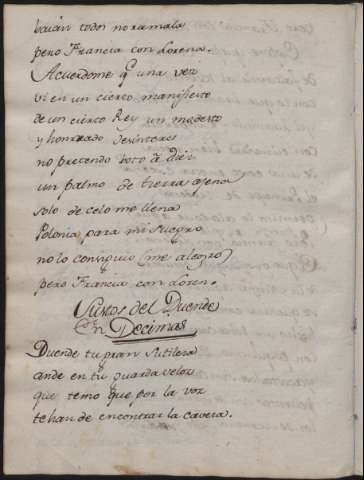 todos noramala
pero Francia con Lorena.
Acuerdome q̃ una vez
vi en un cierto manifiesto
de un cierto Rey un modesto
y honrrado desinteres
no pretendo voto à diez
un palmo de tierra agena
solo de celo me llena
Polonia para mi suegro
no lo consiguio (me alegro)
pero Francia con Loren.
Sustos del Duende
En Decimas
Duende tu gran sutileza
ande en tu guarda veloz
que temo que por la voz
te han de encontrar la caveza.